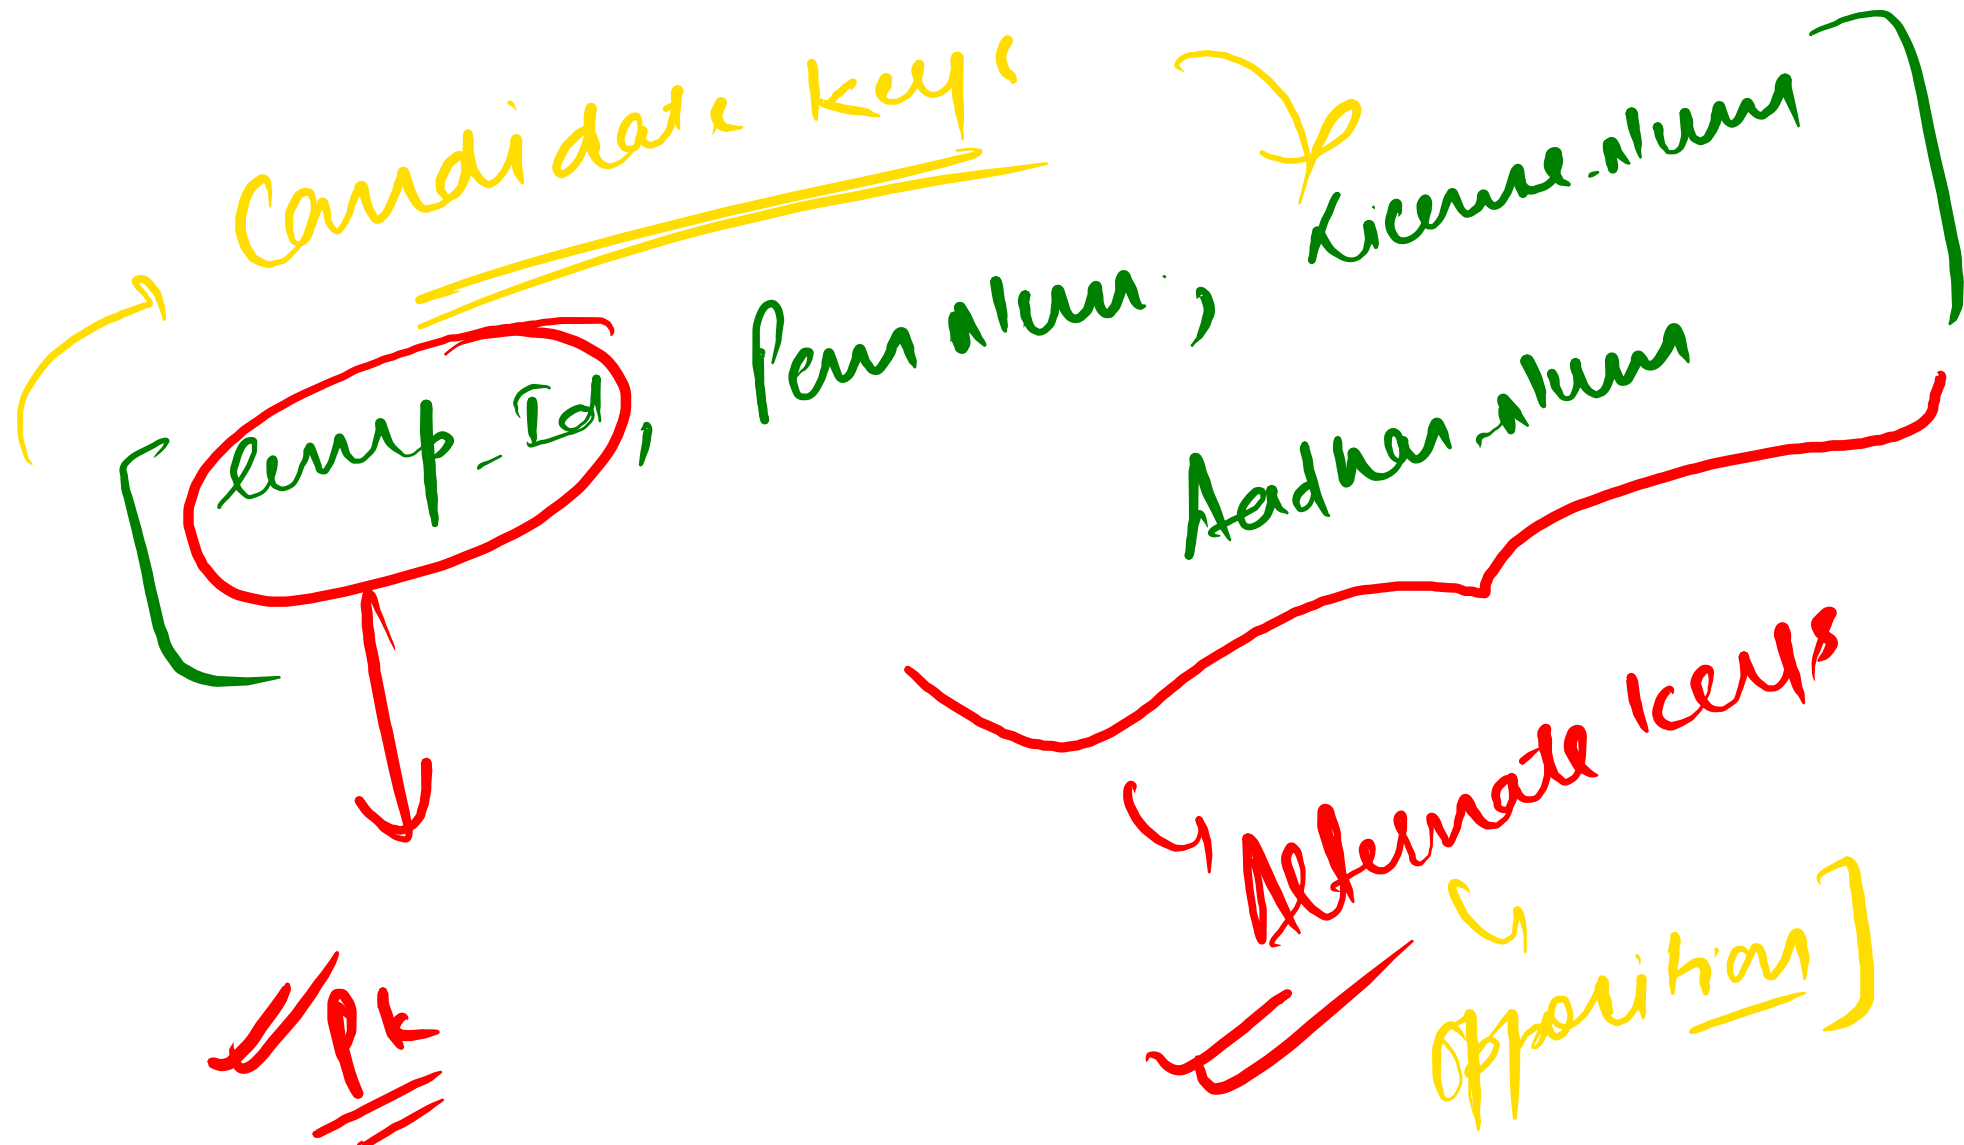 Candidate keys
emp_Id, Pan Num, License_Num
Aadhar_Num
Alternate keys
opposition
PK